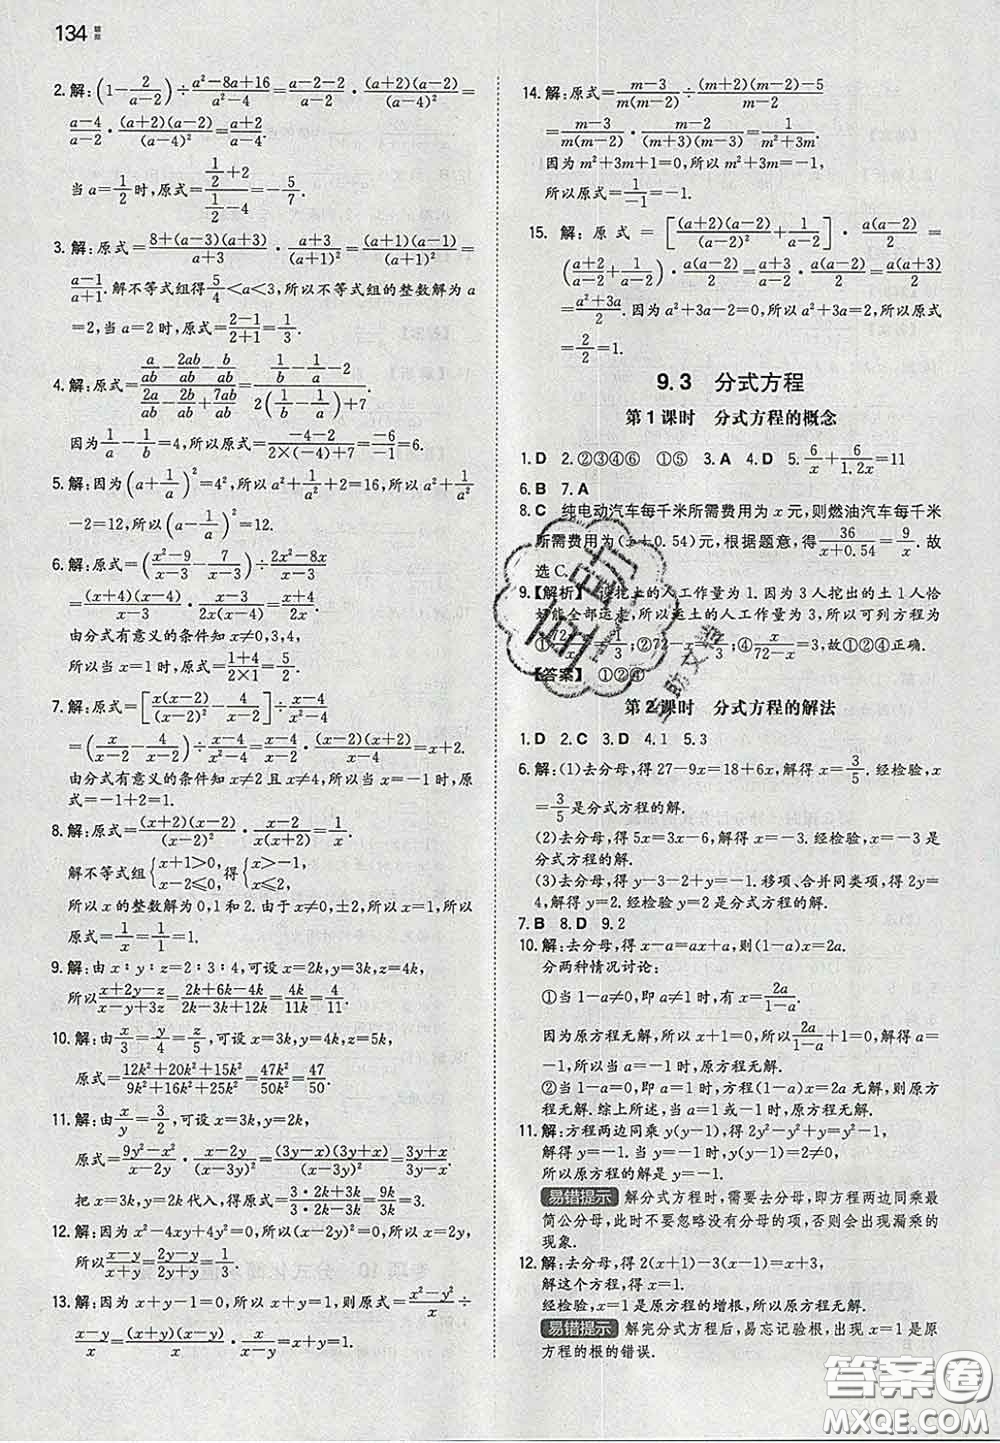 134
2. 解:(1-2/(a-2))÷(a²-8a+16)/(a²-4)=(a-2-2)/(a-2)·(a+2)(a-2)/(a-4)²=
(a-4)/(a-2)·(a+2)(a-2)/(a-4)²=(a+2)/(a-4).
当 a=1/2 时,原式=(1/2+2)/(1/2-4)=-5/7.
3. 解:原式=(8+(a-3)(a+3))/(a+3)·(a+3)/(a+1)²=(a+1)(a-1)/(a+1)²=
(a-1)/(a+1). 解不等式组得 5/4<a<3,所以不等式组的整数解为 a
=2,当 a=2 时,原式=(2-1)/(2+1)=1/3.
4. 解:原式=(a/ab-2ab/ab-b/ab)/(2a/ab-2b/ab+7ab/ab)=(1/b-1/a-2)/(2(1/b-1/a)+7).
因为 1/a-1/b=4,所以原式=(-4-2)/(2×(-4)+7)=-6/-1=6.
5. 解:因为(a+1/a)²=4²,所以 a²+1/a²+2=16,所以 a²+1/a²
-2=12,所以(a-1/a)²=12.
6. 解:原式=((x²-9)/(x-3)-7/(x-3))÷(2x²-8x)/(x-3)
=(x+4)(x-4)/(x-3)·(x-3)/2x(x-4)=(x+4)/2x.
由分式有意义的条件知 x≠0,3,4,
所以当 x=1 时,原式=(1+4)/(2×1)=5/2.
7. 解:原式=[x(x-2)/(x-2)²-4/(x-2)]÷(x-4)/(x²-4)
=(x/(x-2)-4/(x-2))·(x+2)(x-2)/(x-4)=x+2.
由分式有意义的条件知 x≠2 且 x≠4,所以当 x=-1 时,原
式=-1+2=1.
8. 解:原式=(x+2)(x-2)/(x-2)²·(x-2)/x(x+2)=1/x.
解不等式组{x+1>0, x-2≤0, 得{x>-1, x≤2.
所以 x 的整数解为 0,1 和 2. 由于 x≠0,±2,所以 x=1,所以
原式=1/x=1/1=1.
9. 解:由 x:y:z=2:3:4,可设 x=2k,y=3k,z=4k,
所以(x+2y-z)/(x-y+3z)=(2k+6k-4k)/(2k-3k+12k)=4k/11k=4/11.
10. 解:由 x/3=y/4=z/5,可设 x=3k,y=4k,z=5k,
原式=(12k²+20k²+15k²)/(9k²+16k²+25k²)=47k²/50k²=47/50.
11. 解:由 x/y=3/2,可设 x=3k,y=2k,
原式=(9y²-x²)/(x-2y)·(x-2y)/(3y-x)²=(3y-x)(3y+x)/(3y-x)²=(3y+x)/(3y-x).
把 x=3k,y=2k 代入,得原式=(3·2k+3k)/(3·2k-3k)=9k/3k=3.
12. 解:因为 x²-4xy+4y²=0,所以(x-2y)²=0,所以 x=2y,
所以(x-y)/(x+y)=(2y-y)/(2y+y)=1/3.
13. 解:因为 x+y-1=0,所以 x+y=1,则原式=(x²-y²)/x÷
(x-y)/x=(x+y)(x-y)/x·x/(x-y)=x+y=1.
14. 解:原式=(m-3)/m(m-2)÷((m+2)(m-2)-5)/(m-2)
=(m-3)/m(m-2)·(m-2)/(m+3)(m-3)=1/(m²+3m).
因为 m²+3m+1=0,所以 m²+3m=-1,
所以原式=1/-1=-1.
15. 解:原式=[(a+2)(a-2)/(a-2)²+1/(a-2)]·a(a-2)/2=
((a+2)/(a-2)+1/(a-2))·a(a-2)/2=(a+3)/(a-2)·a(a-2)/2
=(a²+3a)/2. 因为 a²+3a-2=0,所以 a²+3a=2,所以原式
=2/2=1.
9.3 分式方程
第1课时 分式方程的概念
1. D 2. ②③④⑥ ①⑤ 3. A 4. D 5. 6/x+6/1.2x=11
6. B 7. A
8. C 纯电动汽车每千米所需费用为 x 元,则燃油汽车每千米
所需费用为(x+0.54)元,根据题意,得36/(x+0.54)=9/x. 故
选 C.
9.【解析】设挖土的人工作量为 1. 因为 3 人挖出的土 1 人恰
好能全部运走,所以运土的人工作量为 3,所以可列方程为
①(72-x)/x=1/3;②72-x=x/3;④x/(72-x)=3. 故①②④正确.
【答案】 ①②④
第2课时 分式方程的解法
1. D 2. C 3. D 4. 1 5. 3
6. 解:(1)去分母,得 27-9x=18+6x,解得 x=3/5. 经检验,x
=3/5是分式方程的解.
(2)去分母,得 5x=3x-6,解得 x=-3. 经检验,x=-3 是
分式方程的解.
(3)去分母,得 y-3-2+y=-1. 移项、合并同类项,得 2y=
4,解得 y=2. 经检验 y=2 是分式方程的解.
7. B 8. D 9. 2
10. 解:去分母,得 x-a=ax+a,则(1-a)x=2a.
分两种情况讨论:
①当 1-a≠0,即 a≠1 时,x=2a/(1-a).
因为原方程无解,所以 x+1=0,所以2a/(1-a)+1=0,解得 a=
-1,所以当 a=-1 时,原方程无解.
②当 1-a=0,即 a=1 时,方程(1-a)x=2a 无解,所以原方
程无解. 综上所述,当 a=1 或-1 时,原方程无解.
11. 解:方程两边同乘 y(y-1),得 2y²-y²+y=y²-1,
解得 y=-1. 当 y=-1 时,y(y-1)≠0,
所以原方程的解是 y=-1.
易错提示 解分式方程时,需要去分母,即方程两边同乘最
简公分母,此时不要忽略没有分母的项,否则会出现漏乘的
现象.
12. 解:去分母,得 2(x+1)-3(x-1)=x+3,
解这个方程,得 x=1.
经检验,x=1 是原方程的增根,所以原方程无解.
易错提示 解完分式方程后,易忘记验根,出现 x=1 是原
方程的根的错误.
答案圈
MXQE.COM